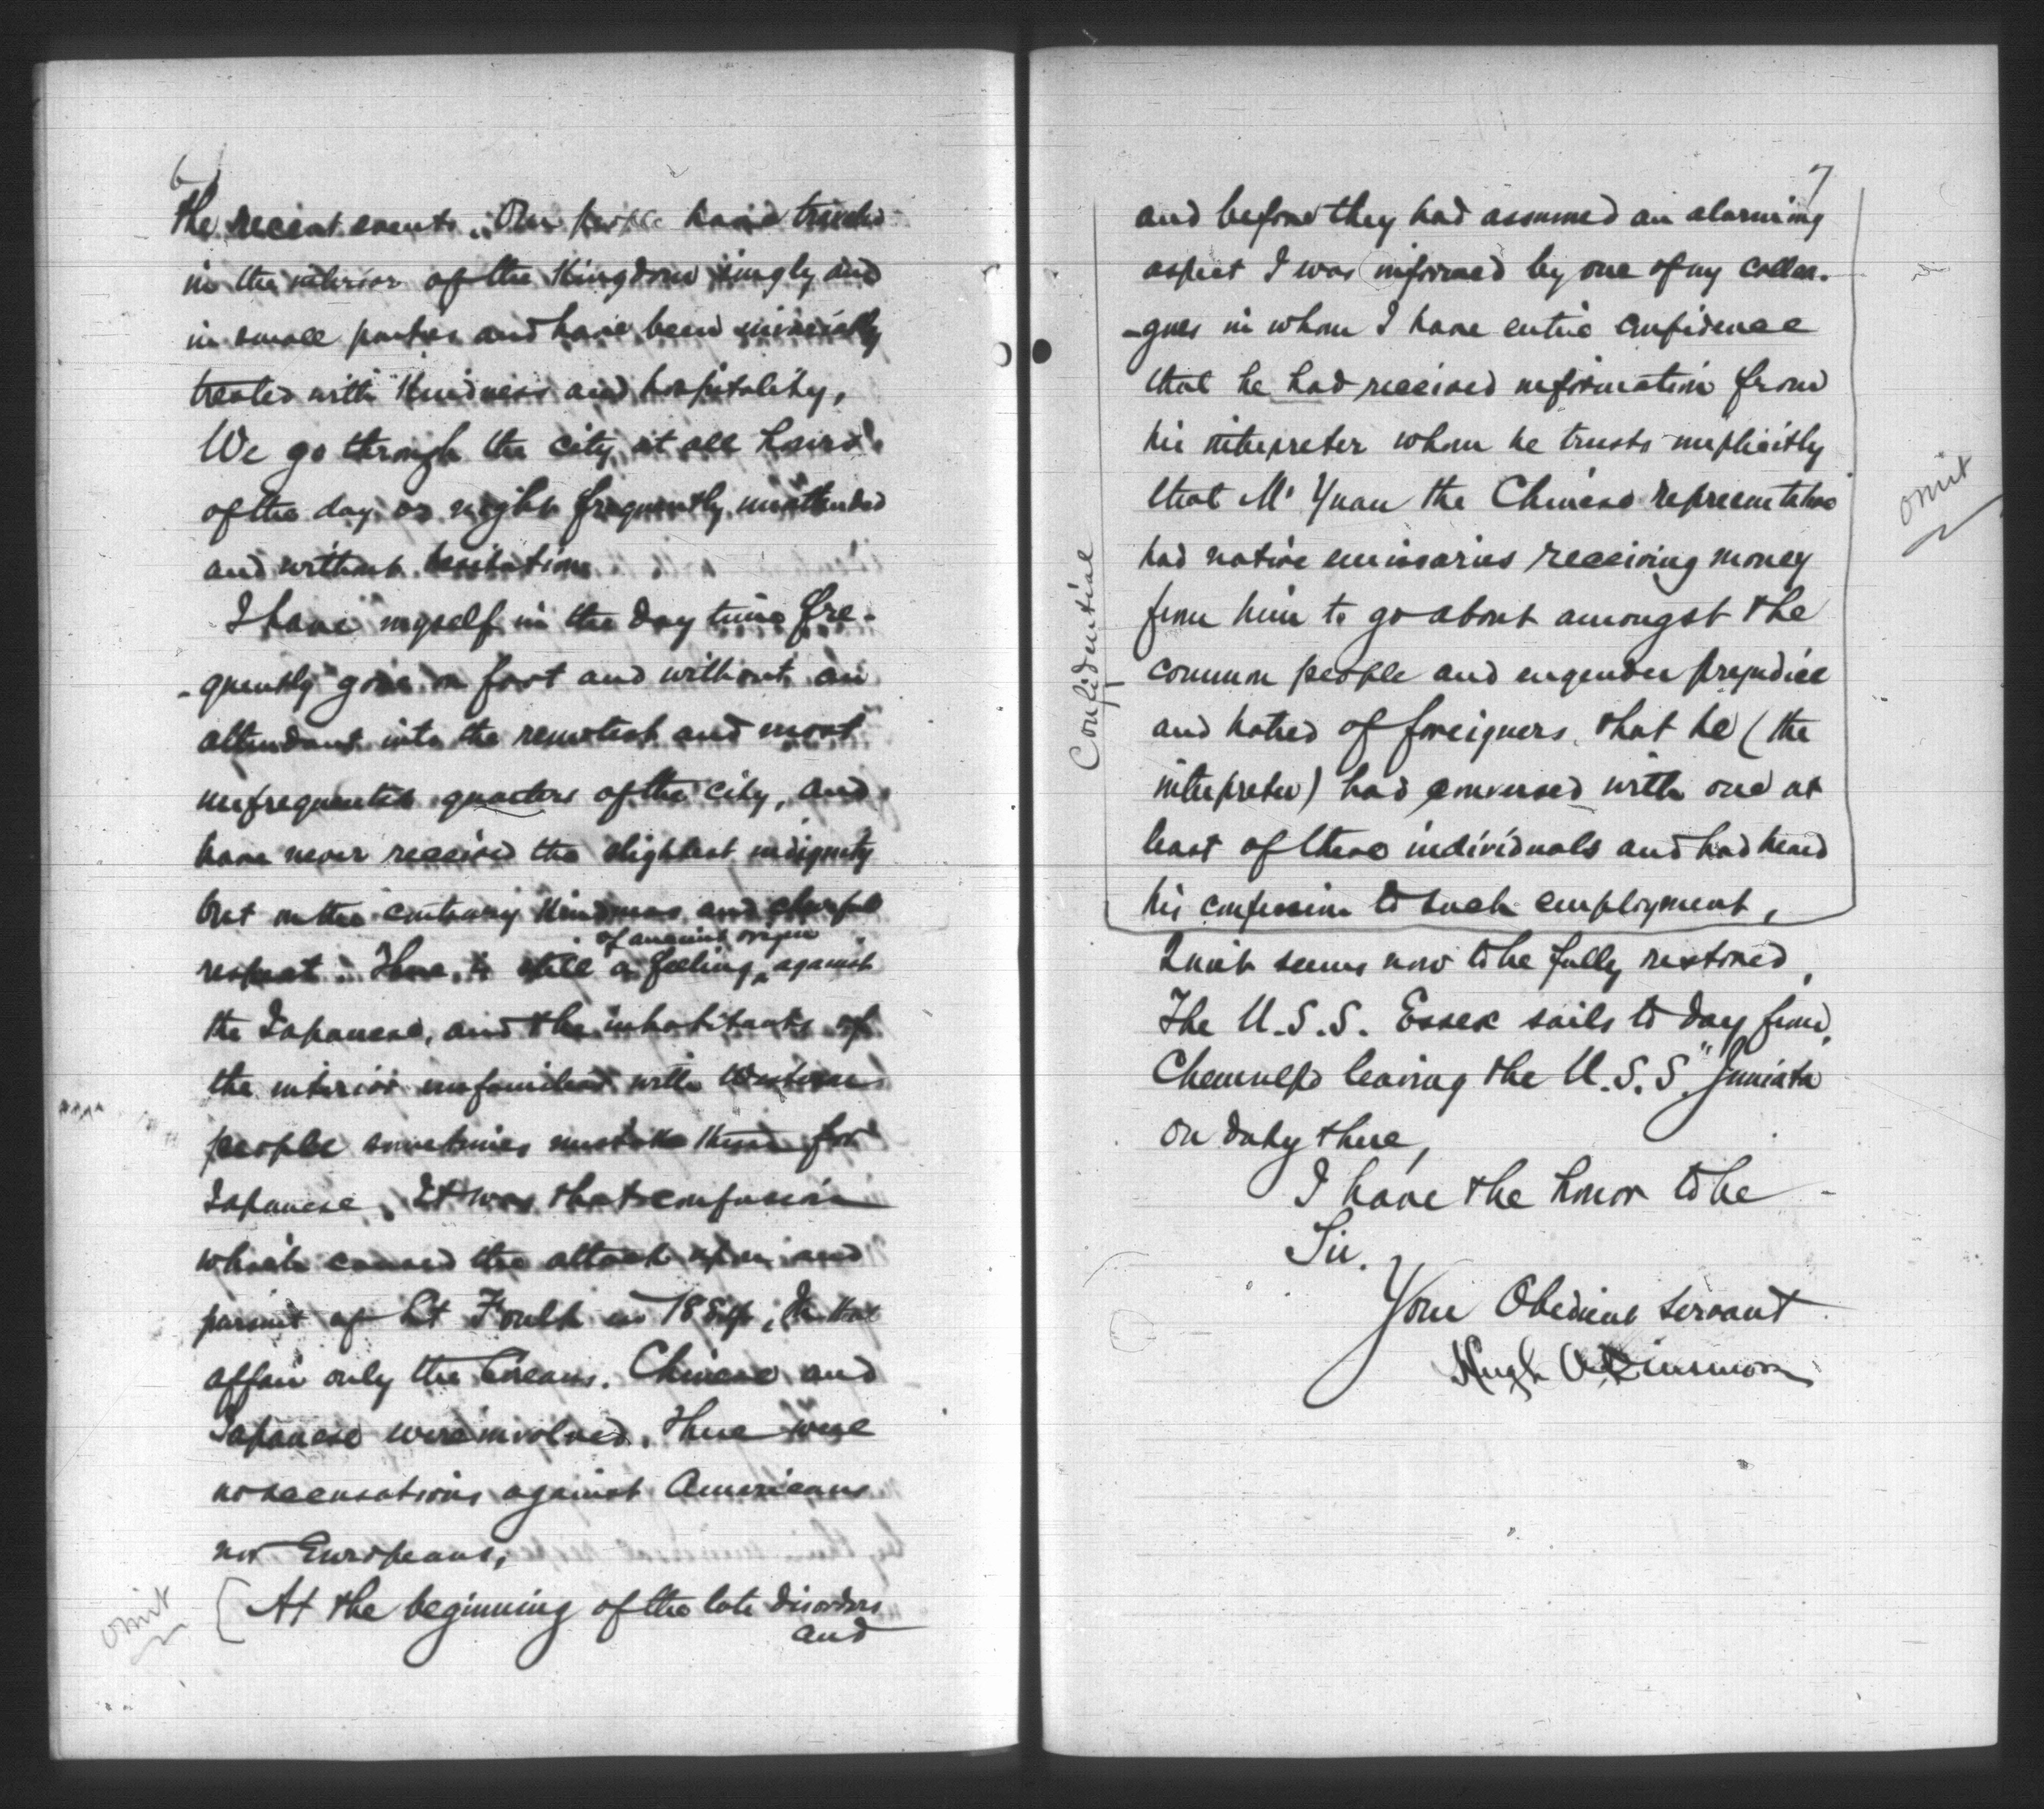 6
the recent events. Our people have traveled
in the interior of the Kingdom singly and
in small parties and have been invariably
treated with Kindness and hospitality,
We go through the city at all hours
of the day or night frequently unattended
and without hesitation.
I have myself in the day time fre-
-quently gone on foot and without an
attendant into the remotest and most
unfrequented quarters of the city, and
have never received the slightest indignity
but on the contrary Kindness and cheerful
of ancient origin
respect. There is still a feeling ^ against
the Japanese, and the inhabitants of
the interior unfamiliar with Western
people sometimes mistake them for
Japanese. It was that confusion
which caused the attack upon and
pursuit of Lt Foulk in 1884, In that
affair only the Coreans. Chinese and
Japanese were involved. There were
no accusations against Americans
nor Europeans,
omit
[ At the beginning of the late disorders
and
7
and before they had assumed an alarming
aspect I was informed by one of my collea-
-gues in whom I have entire confidence
that he had received information from
his interpreter whom he trusts implicitly
that Mr Yuan the Chinese representative
had native emissaries receiving money
from him to go about amongst the
common people and engender prejudice
and hatred of foreigners, that he (the
interpreter) had conversed with one at
least of these individuals and had heard
his confession to such employment,
Confidential
omit
Quiet seems now to be fully restored,
The U.S.S. Essex sails to day from
Chemulpo leaving the U.S.S. "Juniata
on duty there,
I have the honor to be
Sir.
Your Obedient servant
Hugh A Dinsmore